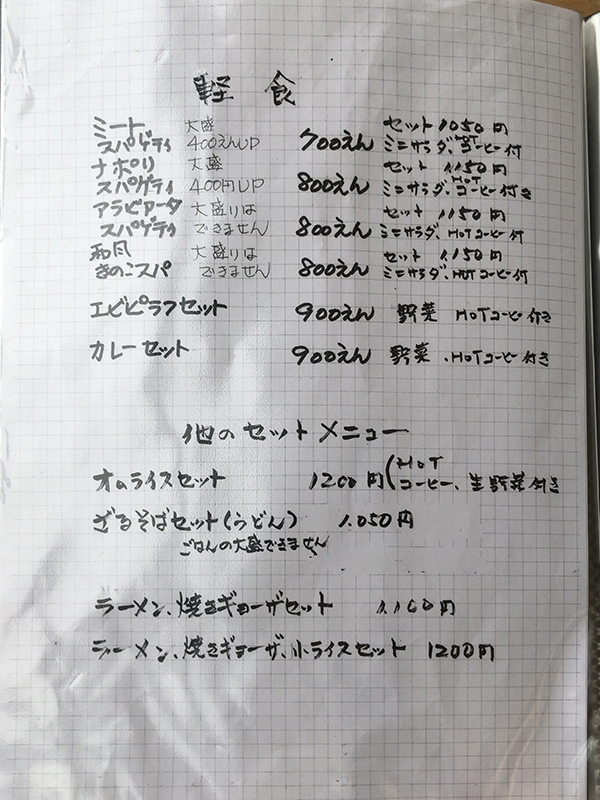 軽食
ミート 大盛 セット1050円
スパゲティ 400えんUP 700えん ミニサラダ、HOTコーヒー付
ナポリ 大盛 セット 1,150円
スパゲティ 400円UP 800えん ミニサラダ、HOTコーヒー付き
アラビアータ 大盛りは セット 1150円
スパゲティ できません 800えん ミニサラダ、HOTコーヒー付
和風 大盛りは セット 1,150円
きのこスパ できません 800えん ミニサラダ、HOTコーヒー付
エビピラフセット 900えん 野菜 HOTコーヒー付き
カレーセット 900えん 野菜、HOTコーヒー付き
他のセットメニュー
オムライスセット 1200円(HOT
コーヒー、生野菜付き
ざるそばセット(うどん) 1,050円
ごはんの大盛できません
ラーメン、焼きギョーザセット 1,100円
ラーメン、焼きギョーザ、小ライスセット 1200円